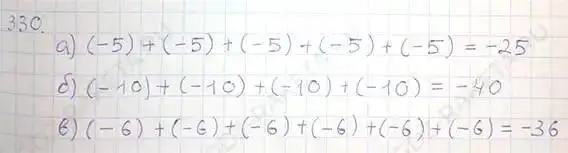 330.
а) (-5) + (-5) + (-5) + (-5) + (-5) = -25
б) (-10) + (-10) + (-10) + (-10) = -40
в) (-6) + (-6) + (-6) + (-6) + (-6) + (-6) = -36